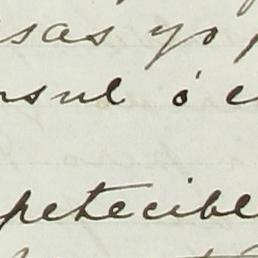 sas yo
nsul ó e
petecible